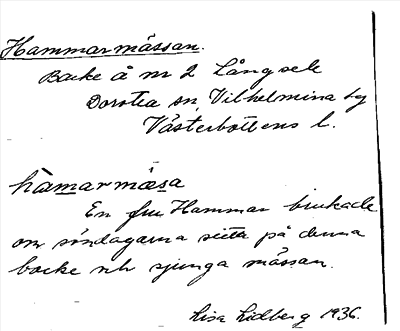 Hammarmässan.
Backe å nr 2 Långsele
Dorotea sn, Vilhelmina tg
Västerbottens l.
hàmarmäsa
En fru Hammar brukade
om söndagarna sitta på denna
backe och sjunga mässan.
Lisa Lidberg 1936.